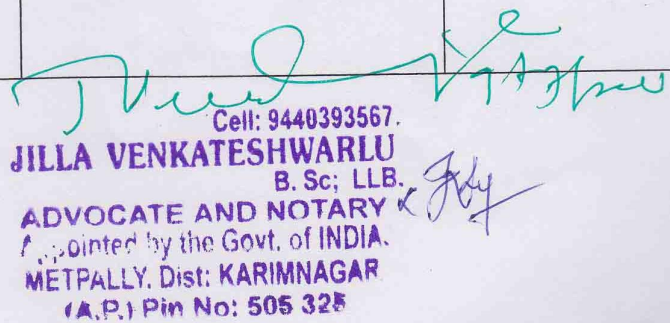 Cell: 9440393567.
JILLA VENKATESHWARLU
B. Sc; LLB.
ADVOCATE AND NOTARY
Appointed by the Govt. of INDIA.
METPALLY, Dist: KARIMNAGAR
(A.P.) Pin No: 505 325